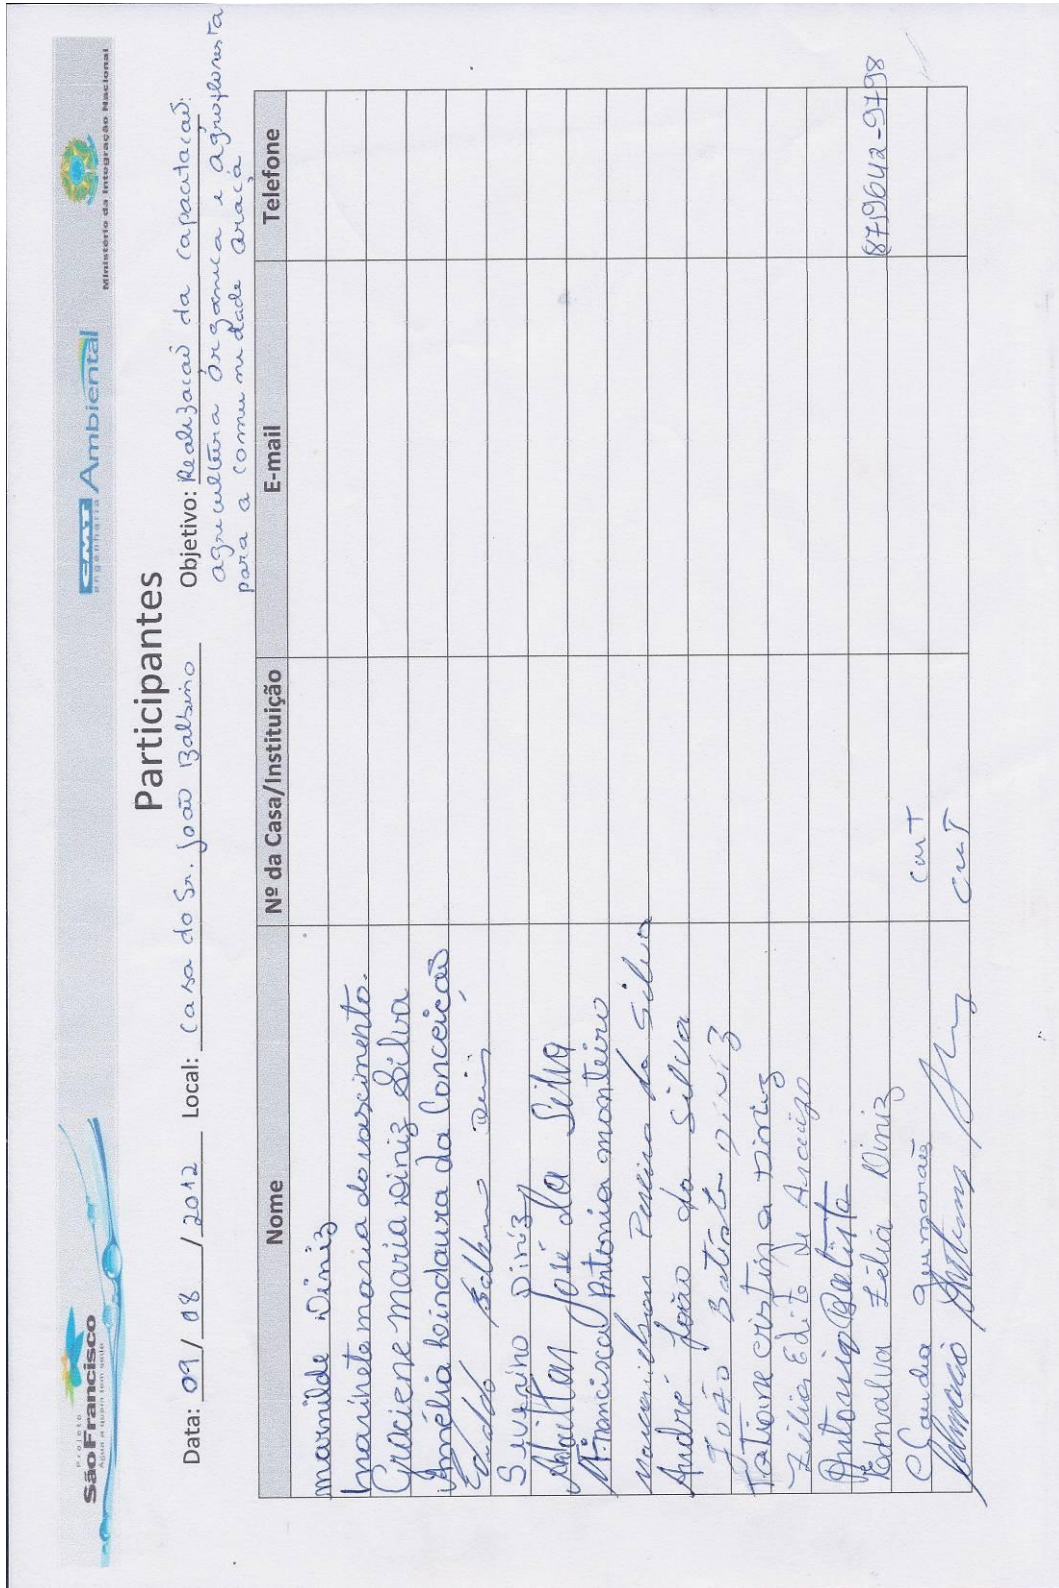 Projeto
São Francisco
Água a quem tem sede
CMT Ambiental
engenharia
Ministério da Integração Nacional
Participantes
Data: 09/08/2012 Local: Casa do Sr. João Balbino Objetivo: Realizacaō da capacitacaō:
agricultura órgânica e agrofloresta
para a comunidade araçá
Nome Nº da Casa/Instituição E-mail Telefone
marnilde Diniz
marinete maria do nascimento.
Graciene maria Diniz Silva
Amélia Lindaura da Conceicaō
Balbino Dinis
Severino Diniz
José da Silva
Francisca Antonia monteiro
Pereira da Silva
André João da Silva
João Batista Diniz
Tatiane cristina Diniz
Zélia Edite de Araujo
Antonio Batista
Ednalva Zélia Diniz 87)9642-9798
Claudia Guimarães CMT
CMT